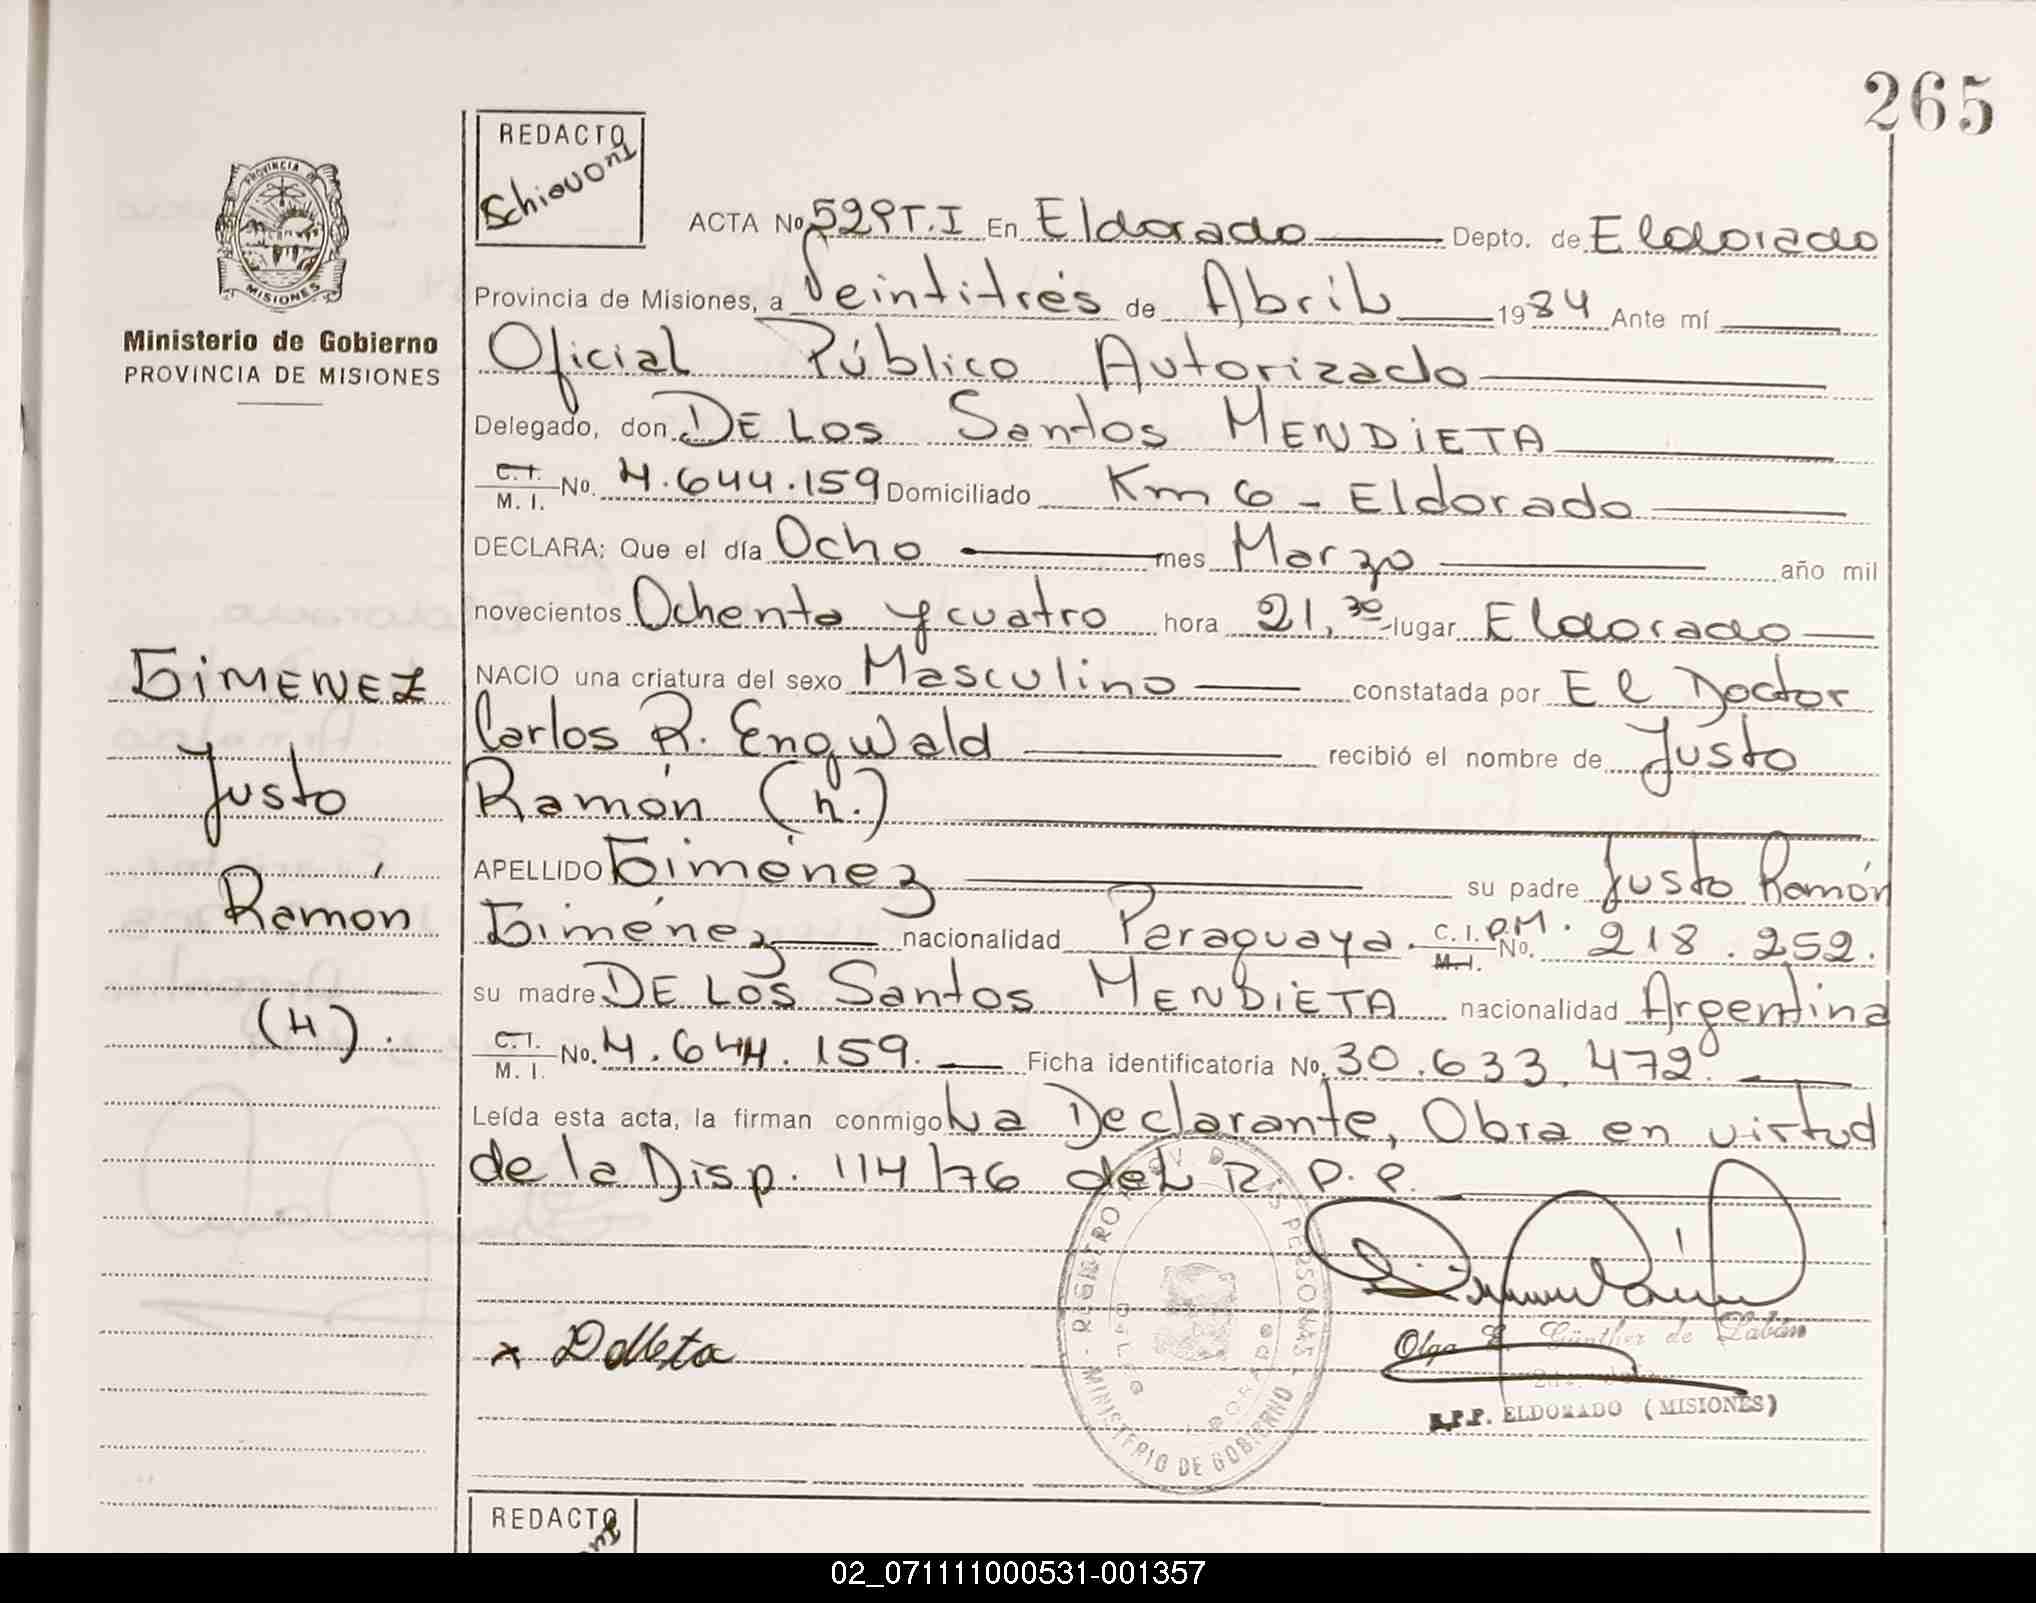 265
REDACTO
Schiavoni
PROVINCIA DE
MISIONES
Ministerio de Gobierno
PROVINCIA DE MISIONES
ACTA No 529 T.I En Eldorado Depto. de Eldorado
Provincia de Misiones, a Veintitrés de Abril 1984 Ante mí
Oficial Público Autorizado
Delegado, don DE LOS Santos MENDIETA
C.I.
M. I. No. 4.644.159 Domiciliado Km 6 - Eldorado
DECLARA: Que el día Ocho mes Marzo año mil
novecientos Ochenta y cuatro hora 21,30 lugar Eldorado
NACIO una criatura del sexo Masculino constatada por El Doctor
Carlos R. Engwald recibió el nombre de Justo
Ramón (h.)
APELLIDO Giménez su padre Justo Ramón
Giménez nacionalidad Paraguaya. C. I. P.M. No. 218.252.
M.I.
su madre DE LOS Santos MENDIETA nacionalidad Argentina
C.I.
M. I. No. 4.644.159. Ficha identificatoria No. 30.633.472.
Leída esta acta, la firman conmigo La Declarante, Obra en virtud
de la Disp. 114/76 del R. P. P.
GIMENEZ
Justo
Ramón
(H).
REGISTRO PROV DE LAS PERSONAS
MINISTERIO DE GOBIERNO
x
Olga E. Günther de Labán
R.P.P. ELDORADO (MISIONES)
REDACTO
02_071111000531-001357